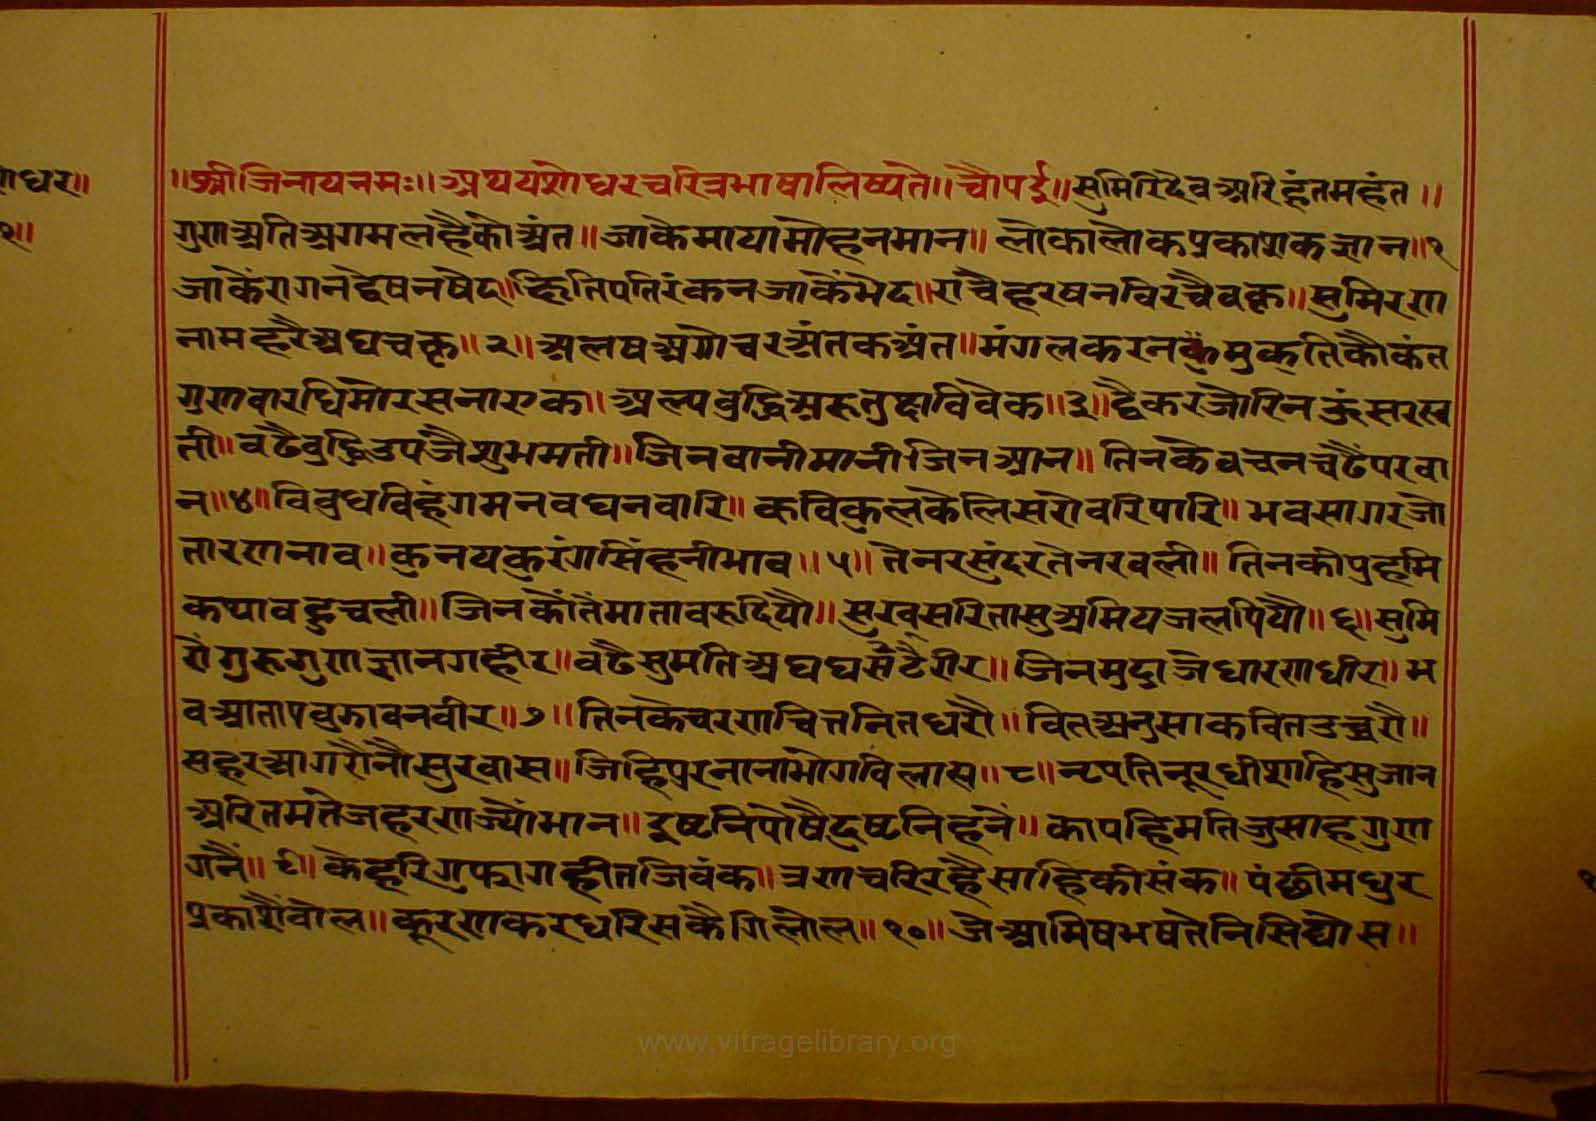 ोधर॥
१॥
॥श्रीजिनायनमः॥अथयशोधरचरित्रभाषालिष्यते॥चौपई॥सुमिरिदेवअरिहंतमहंत॥
गुणअतिअगमलहैकोअंत॥जाकेमायामोहनमान॥लोकालोकप्रकाशकज्ञान॥१
जाकैंरागनद्वेषनषेद॥क्षितिपतिरंकनजाकैंभेद॥राचैहरषनविरचैवक्र॥सुमिरण
नामहरैअघचक्र॥२॥अलषअगोचरअंतकअंत॥मंगलकरनकैंमुकतिकौकंत
गुणवारधिमोरसनाएक॥अल्पबुद्धिअरूतुछविवेक॥३॥द्वैकरजोरिनऊंसरस्व
ती॥वढैवुद्धिउपजैशुभमती॥जिनवानीमानीजिनआन॥तिनकेवचनचढैंपरवा
न॥४॥विवुधविहंगमनवघनवारि॥कविकुलकेलिसरोवरिपारि॥भवसागरजो
तारणनाव॥कुनयकुरंगसिंहनीभाव॥५॥तेनरसुंदरतेनरवली॥तिनकीपुहमि
कथावहुचली॥जिनकौंतैंमातावरूदियौ॥सुरवसरितासुअमियजलपियौ॥६॥सुमि
रोंगुरूगुणज्ञानगहीर॥वढैसुमतिअघघसैटैरीर॥जिनमुद्राजेधारणधीर॥भ
वआतापवुझावनवीर॥७॥तिनकेचरणचित्तनितधरौ॥वितअनुसाकवितउच्चरौ॥
सहरआगरौनौसुरवास॥जिहिपुरनानाभोगविलास॥८॥नृपतिनूरधीशाहिसुजान
अरितमतेजहरणज्यौंभान॥इष्टनिपोषैदुष्टनिहनें॥कापहिमतिजुसाहगुण
गनैं॥९॥केहरिगुफागहीतजिवंक॥त्रणचरिरहैसाहिकीसंक॥पंछीमधुर
प्रकाशैंवोल॥कूरणकरधरिसकैगिलोल॥१०॥जेआमिषभषतेनिसिद्यौस॥
www.vitragelibrary.org